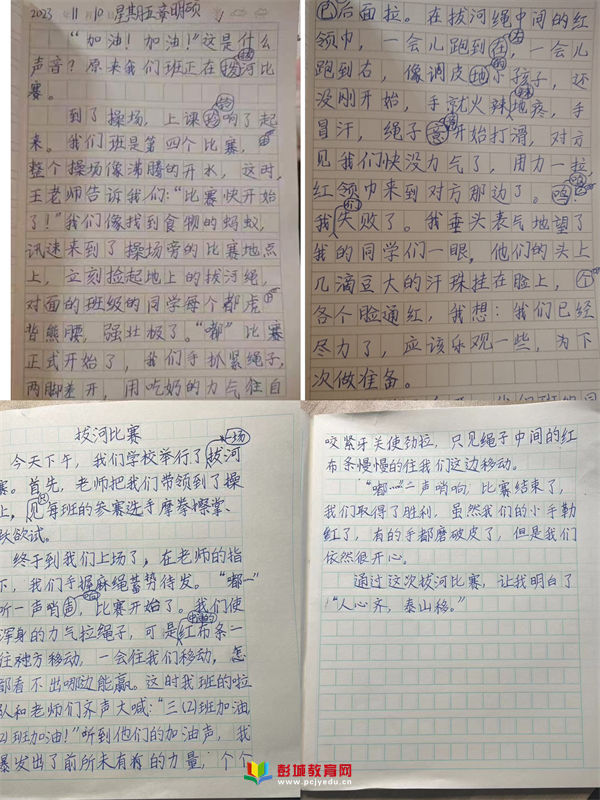 2023 11 10 星期五章明硕
“加油！加油！”这是什么
声音？原来我们班正在拔河比
赛。
到了操场，上课铃响了起
来。我们班是第四个比赛，
整个操场像沸腾的开水，这时，
王老师告诉我们：“比赛快开始
了！”我们像找到食物的蚂蚁，
讯速来到了操场旁的比赛地点
上，立刻捡起地上的拔河绳，
对面的班级的同学每个都虎
背熊腰，强壮极了。“嘟”比赛
正式开始了，我们手抓紧绳子，
两脚差开，用吃奶的力气往自
已后面拉。在拔河绳中间的红
领巾，一会儿跑到左，一会儿
跑到右，像调皮地小孩子，还
没刚开始，手就火辣地疼，手
冒汗，绳子开始打滑，对方
见我们快没力气了，用力一拉，
红领巾来到对方那边了。
我们失败了。我垂头丧气地望了
我的同学们一眼，他们的头上
几滴豆大的汗珠挂在脸上，个
各个脸通红，我想：我们已经
尽力了，应该乐观一些，为下
次做准备。
拔河比赛
今天下午，我们学校举行了一场拔河
赛。首先，老师把我们带领到了操
上，见每班的参赛选手摩拳擦掌、
跃欲试。
终于到我们上场了，在老师的指
下，我们手握麻绳蓄势待发。“嘟…”
听一声哨响，比赛开始了。我们使
浑身的力气拉绳子，可是红布条一
往对方移动，一会往我们移动，怎
都看不出哪边能赢。这时我班的啦
队和老师们齐声大喊：“三(2)班加油
(2)班加油！”听到他们的加油声，我
暴发出了前所未有的力量，个个
咬紧牙关使劲拉，只见绳子中间的红
布条慢慢的往我们这边移动。
“嘟……”一声哨响，比赛结束了，
我们取得了胜利，虽然我们的小手勒
红了，有的手都磨破皮了，但是我们
依然很开心。
通过这次拔河比赛，让我明白了
“人心齐，泰山移。”
彭城教育网
www.pcjyedu.cn